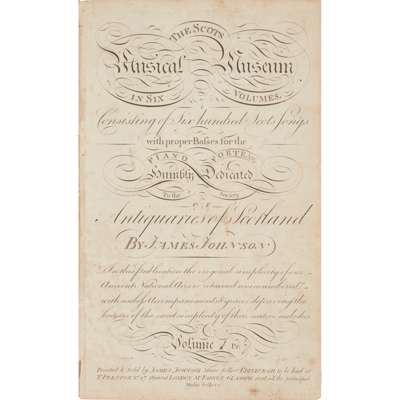 THE SCOTS
Musical Museum
IN SIX VOLUMES.
Consisting of Six hundred Scots Songs
with proper Basses for the
PIANO FORTE &c
Humbly Dedicated
To the Society
OF
Antiquaries of Scotland
BY JAMES JOHNSON
In this publication the original simplicity of our
Ancient National Airs is retained unincumbered
with useless Accompaniments & graces depriving the
hearers of the sweet simplicity of their native melodies
Volume
Printed & Sold by JAMES JOHNSON Music Seller EDINBURGH to be had at
T. PRESTON Nº 97 Strand LONDON McFADYEN GLASGOW and at all the principal
Music Sellers